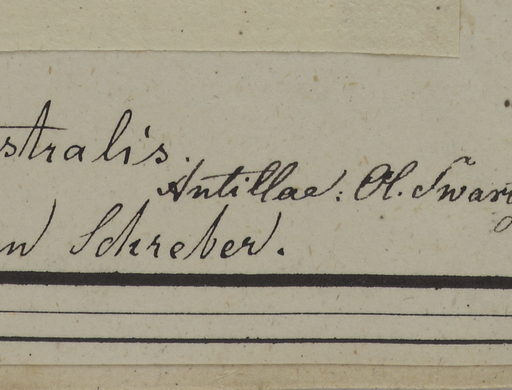 stralis.
Antillae: Ol. Swar
n Schreber.